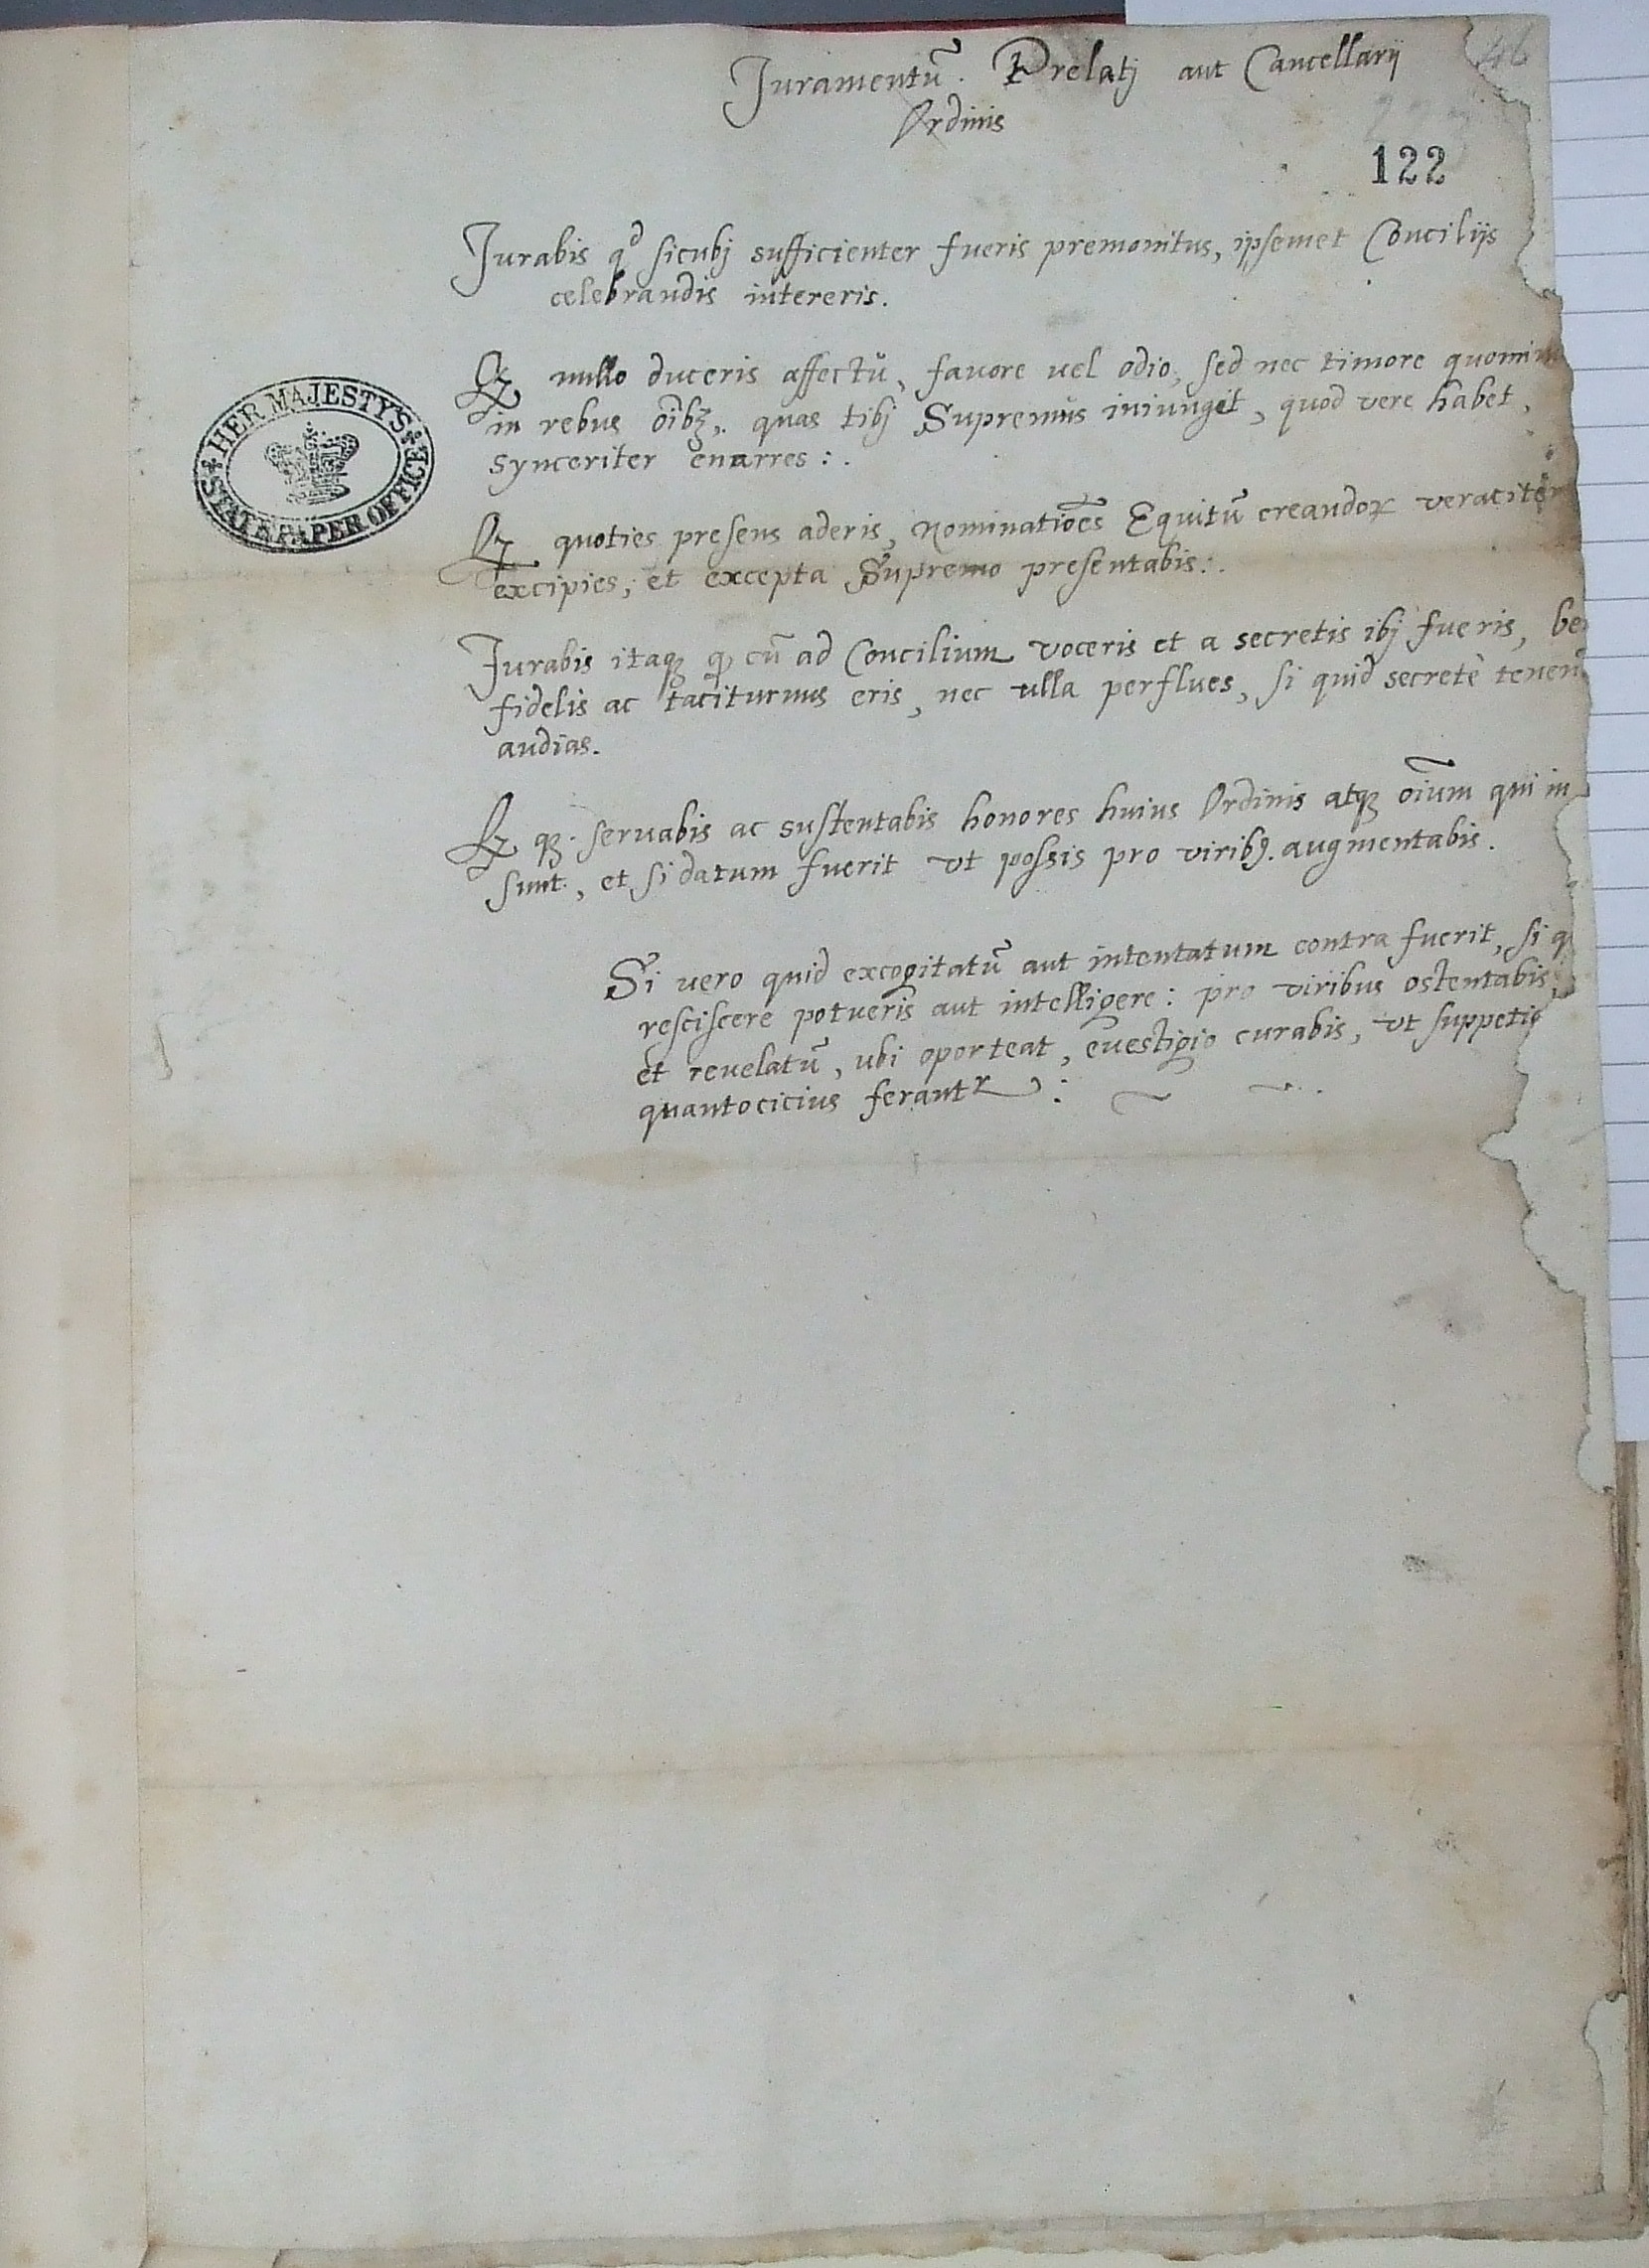 Juramentū. Prelatj aut Cancellarij
Ordinis
122
Jurabis qd sicubj sufficienter fueris premonitus, ipsemet Concilijs
celebrandis intereris.
Qz nullo duceris affectū, favore vel odio, sed nec timore quomin
in rebus oībꝫ, quas tibj Supremus iniunget, quod vere habet,
synceriter enarres :.
HER MAJESTY'S
STATE PAPER OFFICE
Qz quoties presens aderis, nominatiōēs Equitū creandoꝝ veraciter
excipies, et excepta Supremo presentabis:.
Jurabis itaqꝫ ꝙ cū ad Concilium voceris et a secretis ibj fueris, be
fidelis ac taciturnus eris, nec ulla perflues, si quid secretè tenen
audias.
Qz qꝫ. seruabis ac sustentabis honores huius Ordinis atqꝫ oīum qui in
sunt, et si datum fuerit vt possis pro viribꝫ. augmentabis.
Si vero quid excogitatū aut intentatum contra fuerit, si q
resciscere potueris aut intelligere: pro viribus ostentabis,
et reuelatū, ubi oporteat, euestigio curabis, vt suppetię
quantocicius ferantr :